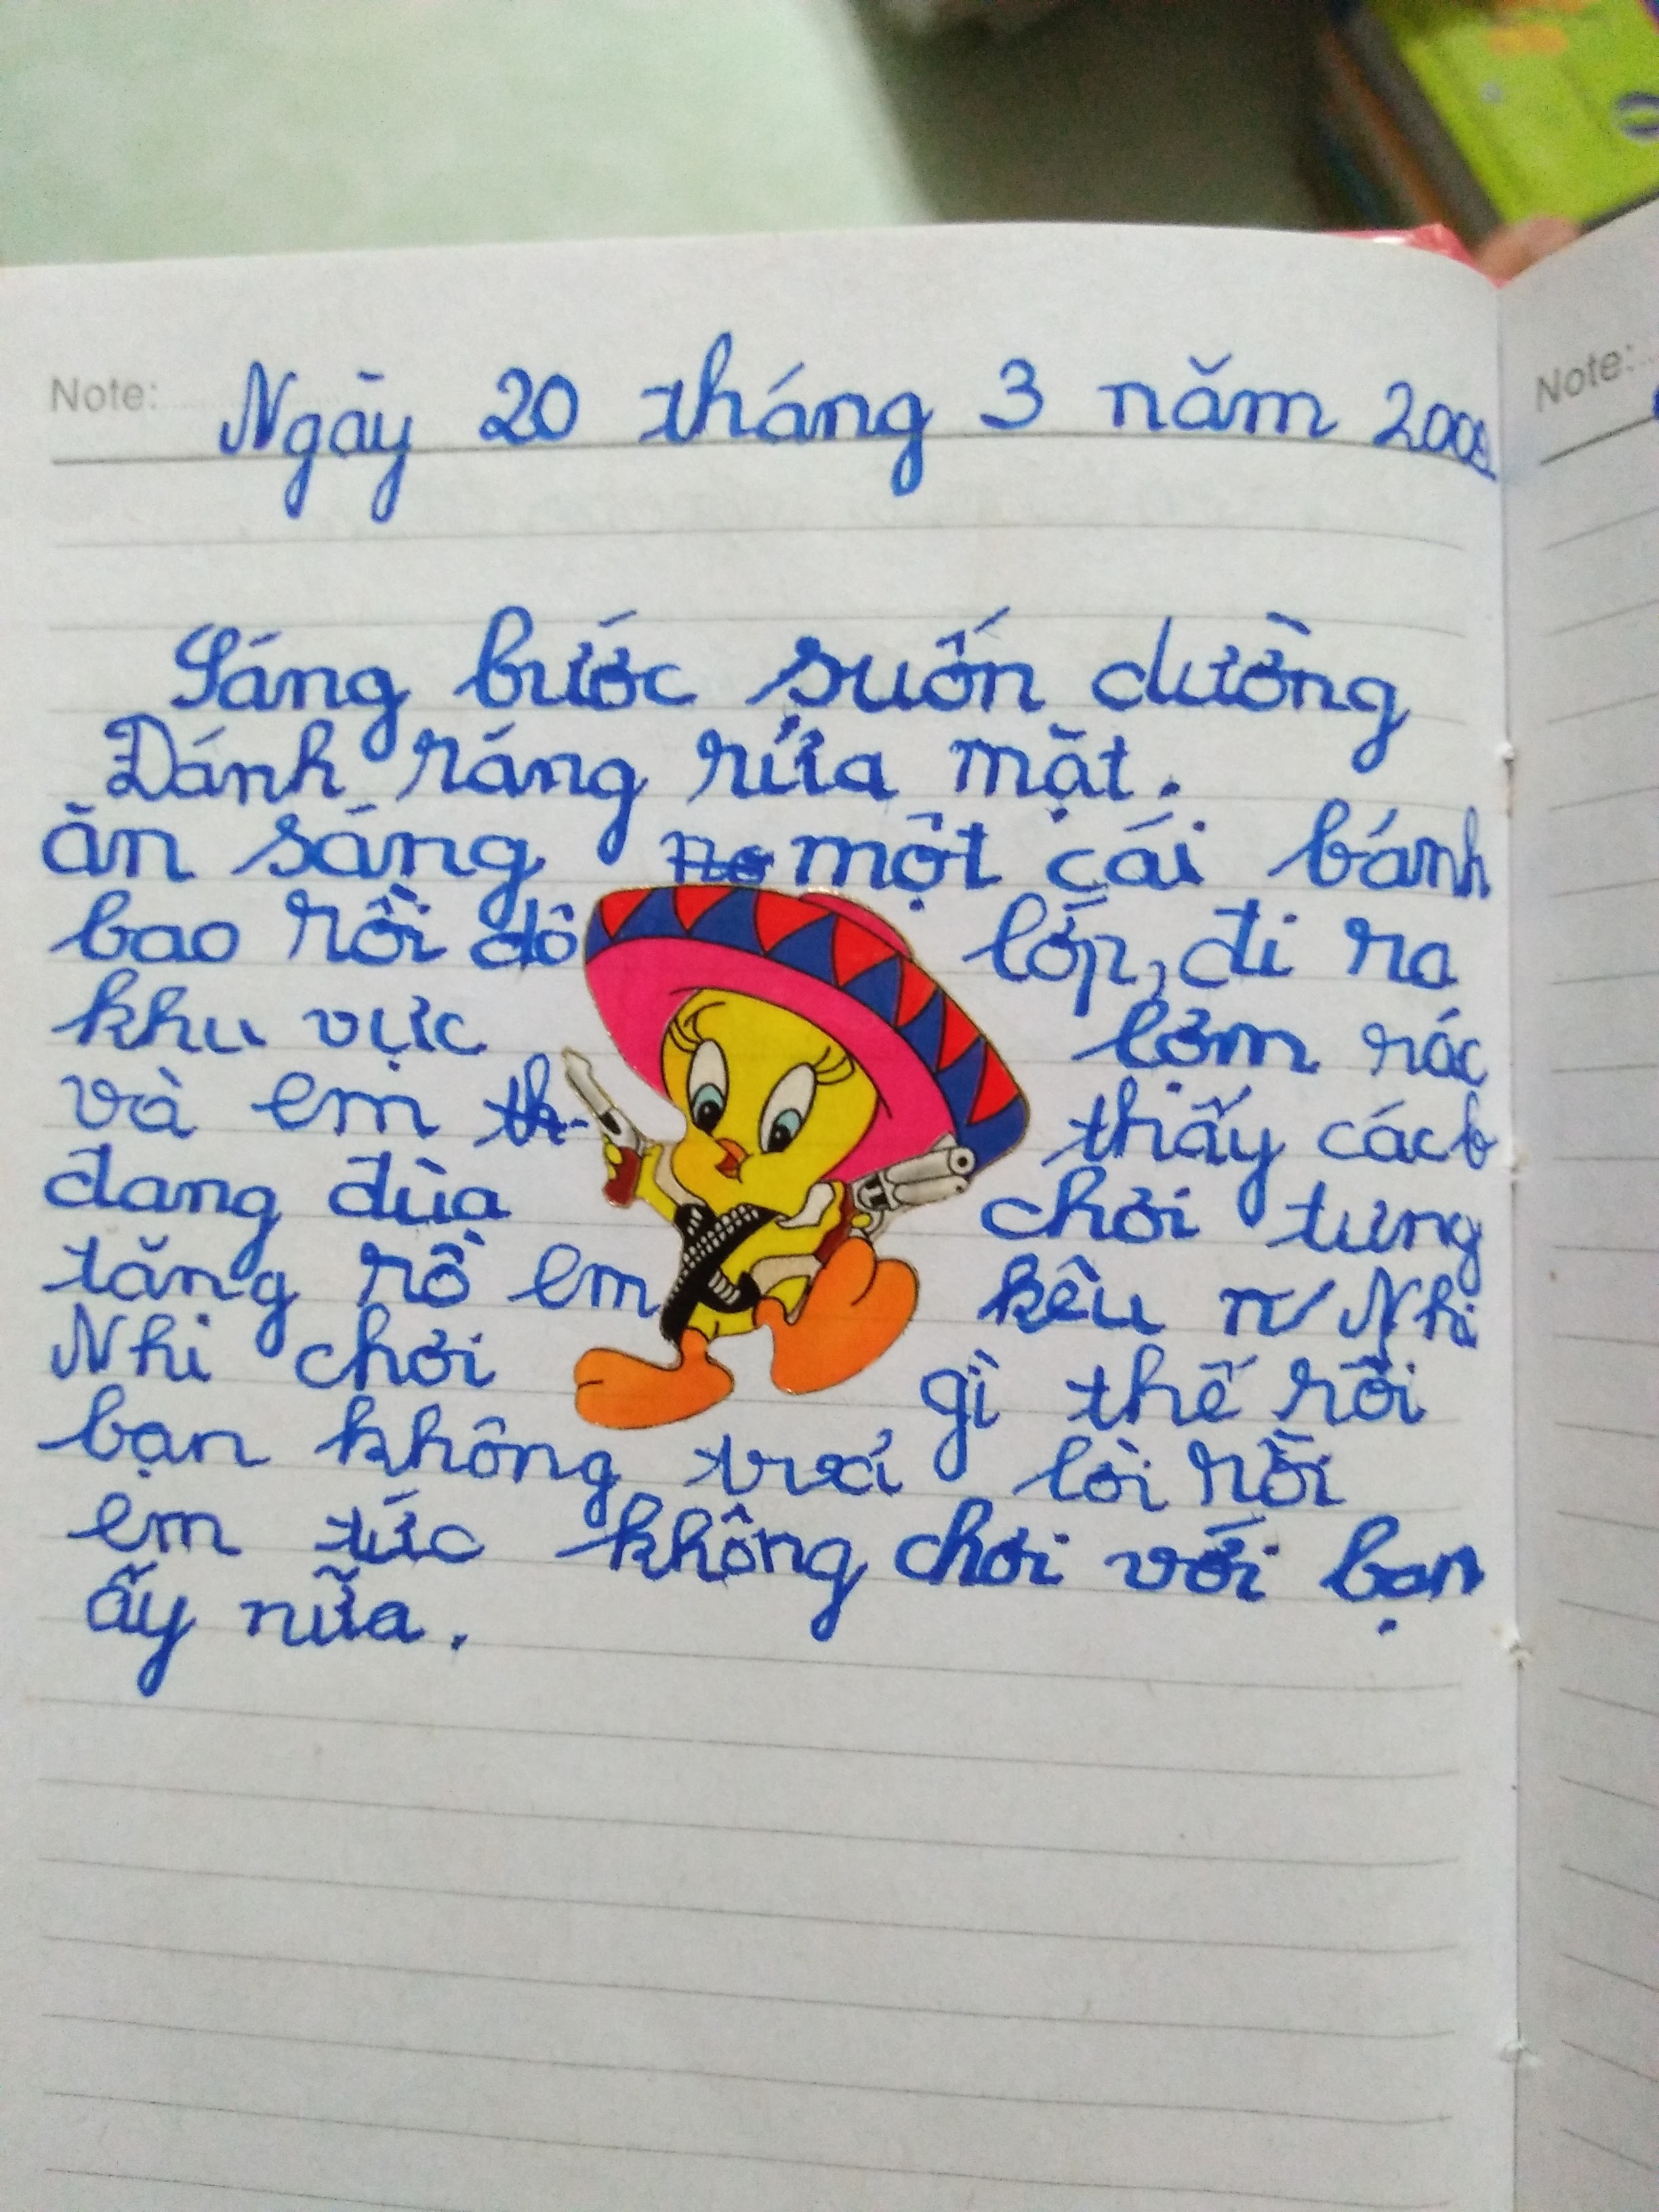 Note: Ngày 20 tháng 3 năm 2008.
Sáng bước suốn dường
Dánh ráng rửa mặt.
ăn sáng một cái bánh
bao rồi dô lớp, đi ra
khu vực lơm rác
và em th thấy các b
đang đùa chơi tưng
tăng rồ em kêu n Nhi
Nhi chơi gì thế rồi
bạn không trả lời rồi
em tức không chơi với bạn
ấy nữa.
Note: